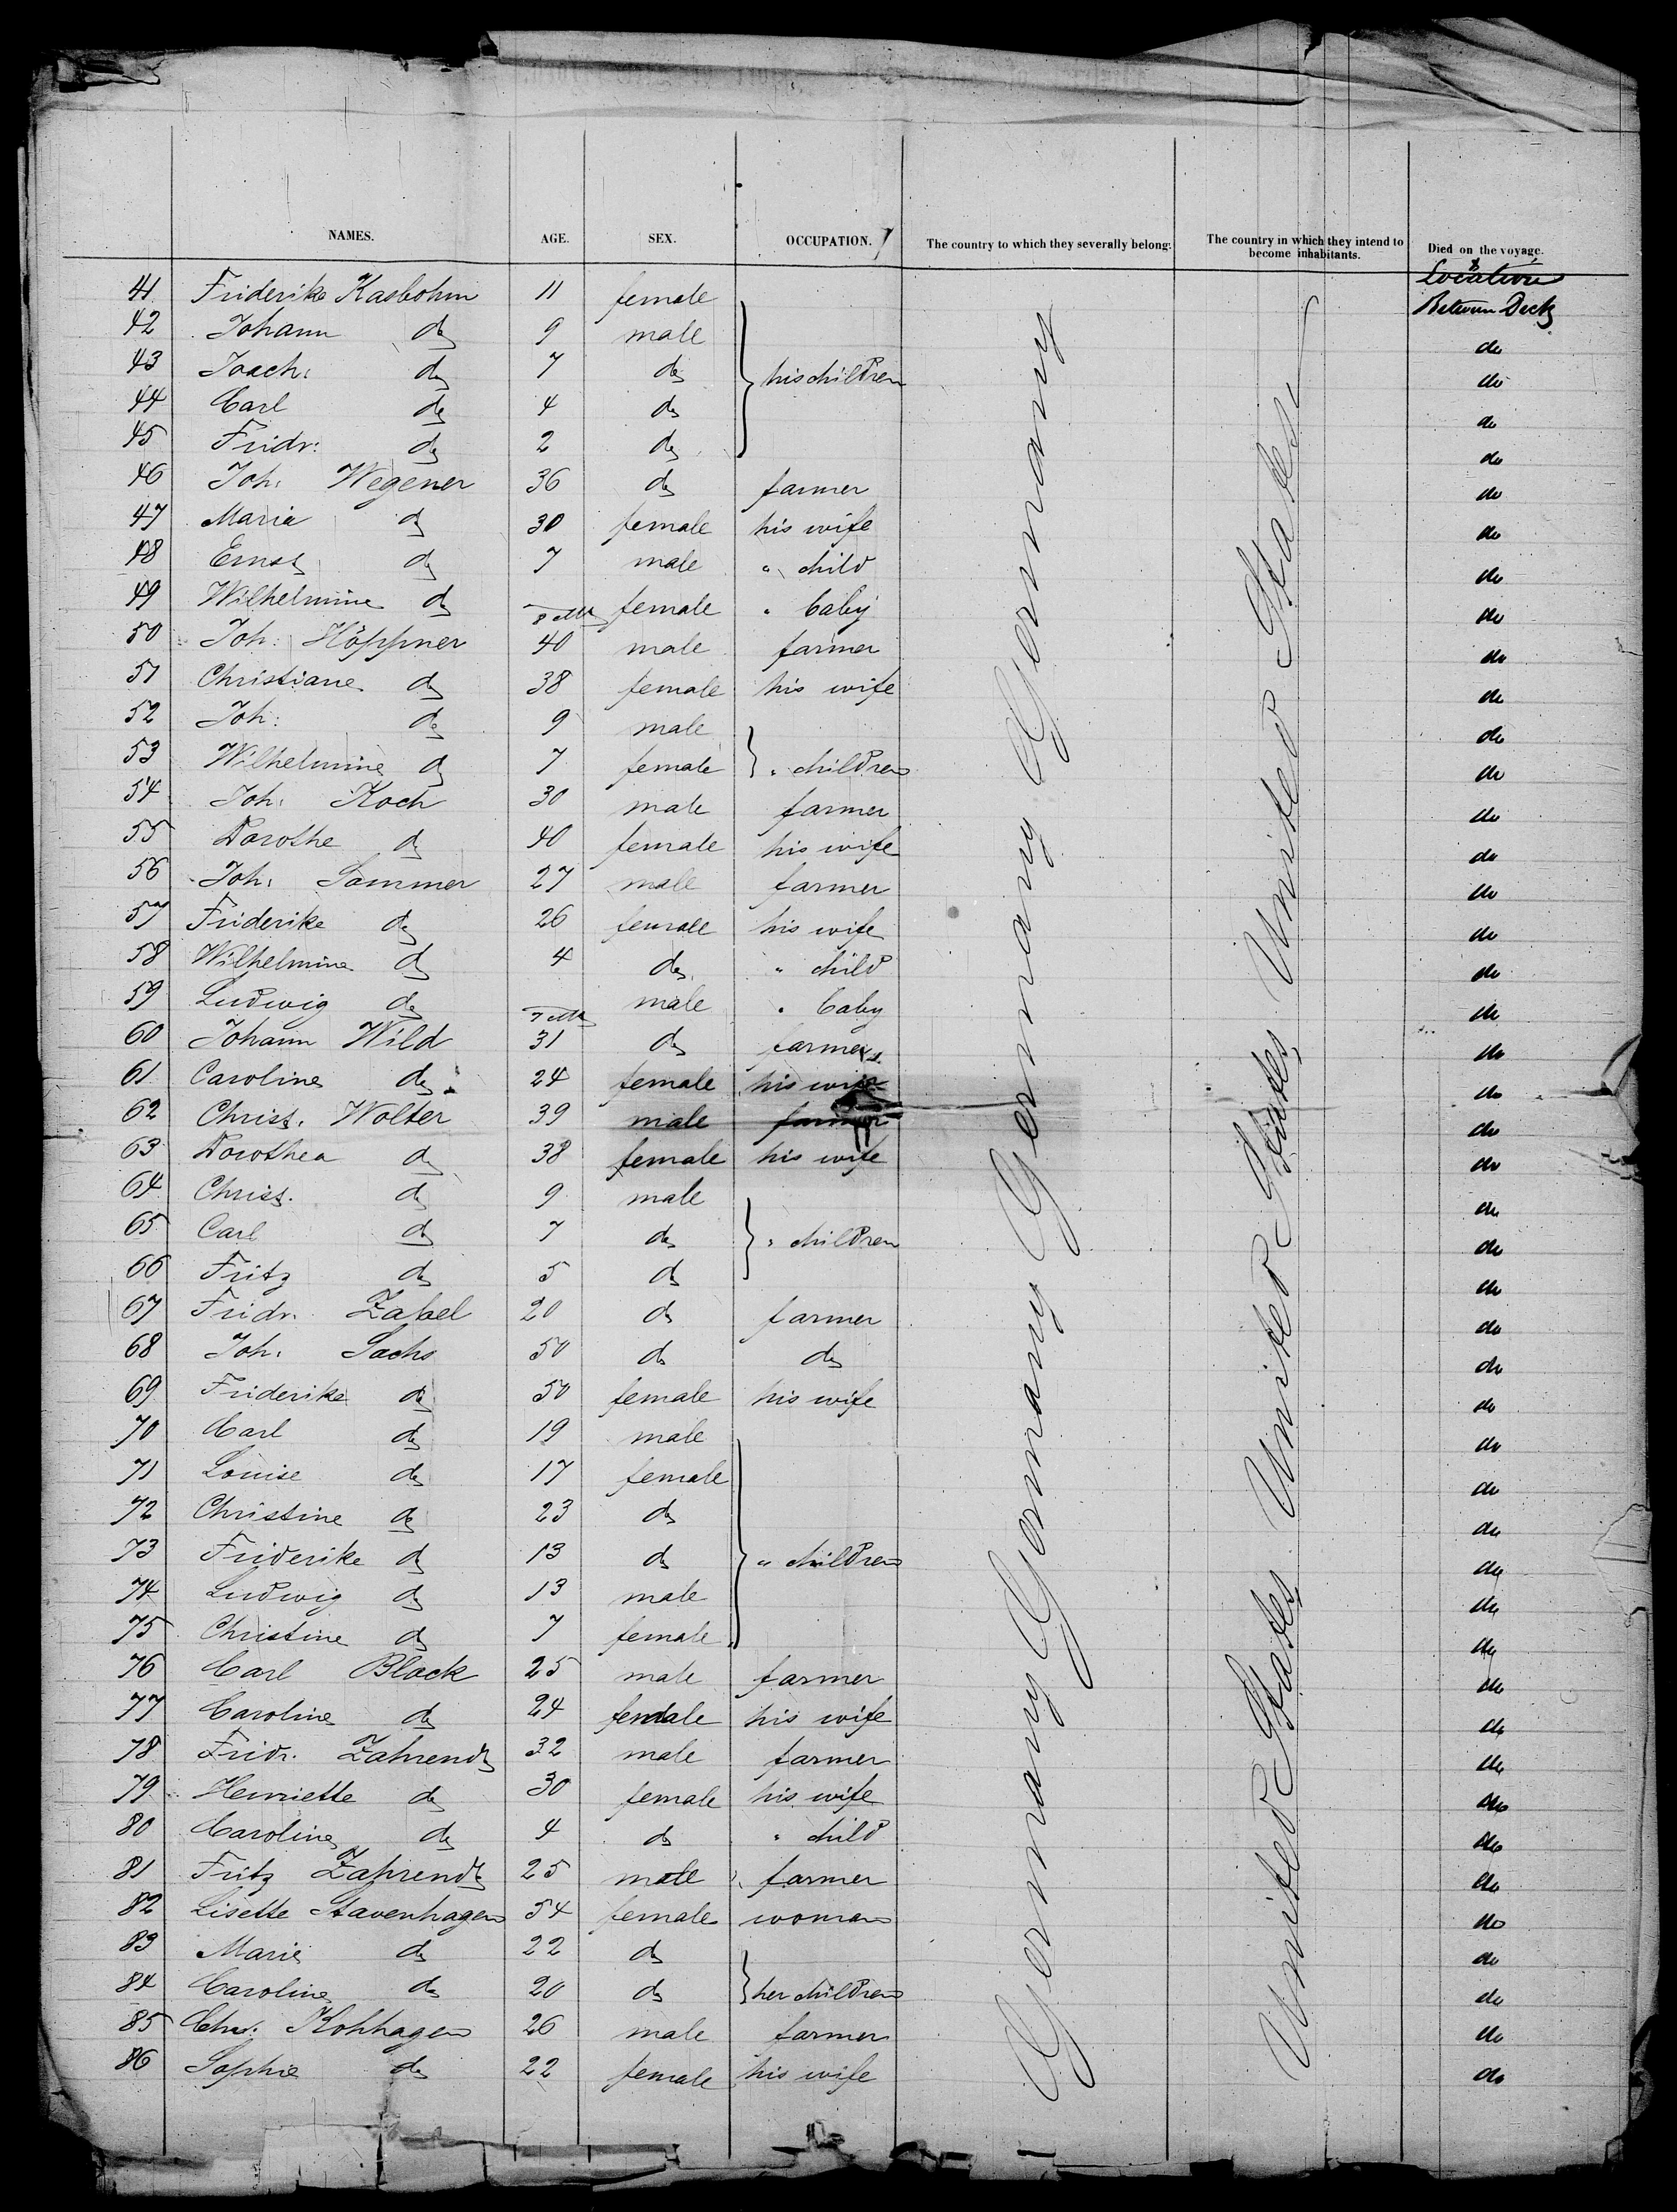 NAMES. AGE. SEX. OCCUPATION. The country to which they severally belong. The country in which they intend to become inhabitants. Died on the voyage.
Location
41 Friderike Kasbohm 11 female Between Deck
42 Johann do 9 male do
43 Joach: do 7 do his children do
44 Carl do 4 do do
45 Fridr: do 2 do do
46 Joh: Wegener 36 do farmer do
47 Maria do 30 female his wife do
48 Ernst do 7 male " child do
49 Wilhelmine do 8 Mth female " baby do
50 Joh: Höppner 40 male farmer do
51 Christiane do 38 female his wife do
52 Joh: do 9 male do
53 Wilhelmine do 7 female " children do
54 Joh: Koch 30 male farmer do
55 Dorothe do 40 female his wife do
56 Joh: Sommer 27 male farmer do
57 Friderike do 26 female his wife do
58 Wilhelmine do 4 do " child do
59 Ludwig do 7 Mth male " baby do
60 Johann Wild 31 do farmer do
61 Caroline do 24 female his wife do
62 Christ. Wolter 39 male farmer do
63 Dorothea do 38 female his wife do
64 Christ. do 9 male do
65 Carl do 7 do " children do
66 Fritz do 5 do do
67 Fridr. Zabel 20 do farmer do
68 Joh: Sachs 50 do do do
69 Friderike do 50 female his wife do
70 Carl do 19 male do
71 Louise do 17 female do
72 Christine do 23 do do
73 Friderike do 13 do " children do
74 Ludwig do 13 male do
75 Christine do 7 female do
76 Carl Block 25 male farmer do
77 Caroline do 24 female his wife do
78 Fridr. Zahrendt 32 male farmer do
79 Henriette do 30 female his wife do
80 Caroline do 4 do " child do
81 Fritz Zahrendt 25 male farmer do
82 Lisette Stavenhagen 54 female woman do
83 Marie do 22 do do
84 Caroline do 20 do her children do
85 Chr: Kohhagen 26 male farmer do
86 Sophie do 22 female his wife do
Germany Germany Germany Germany Germany
United States United States United States